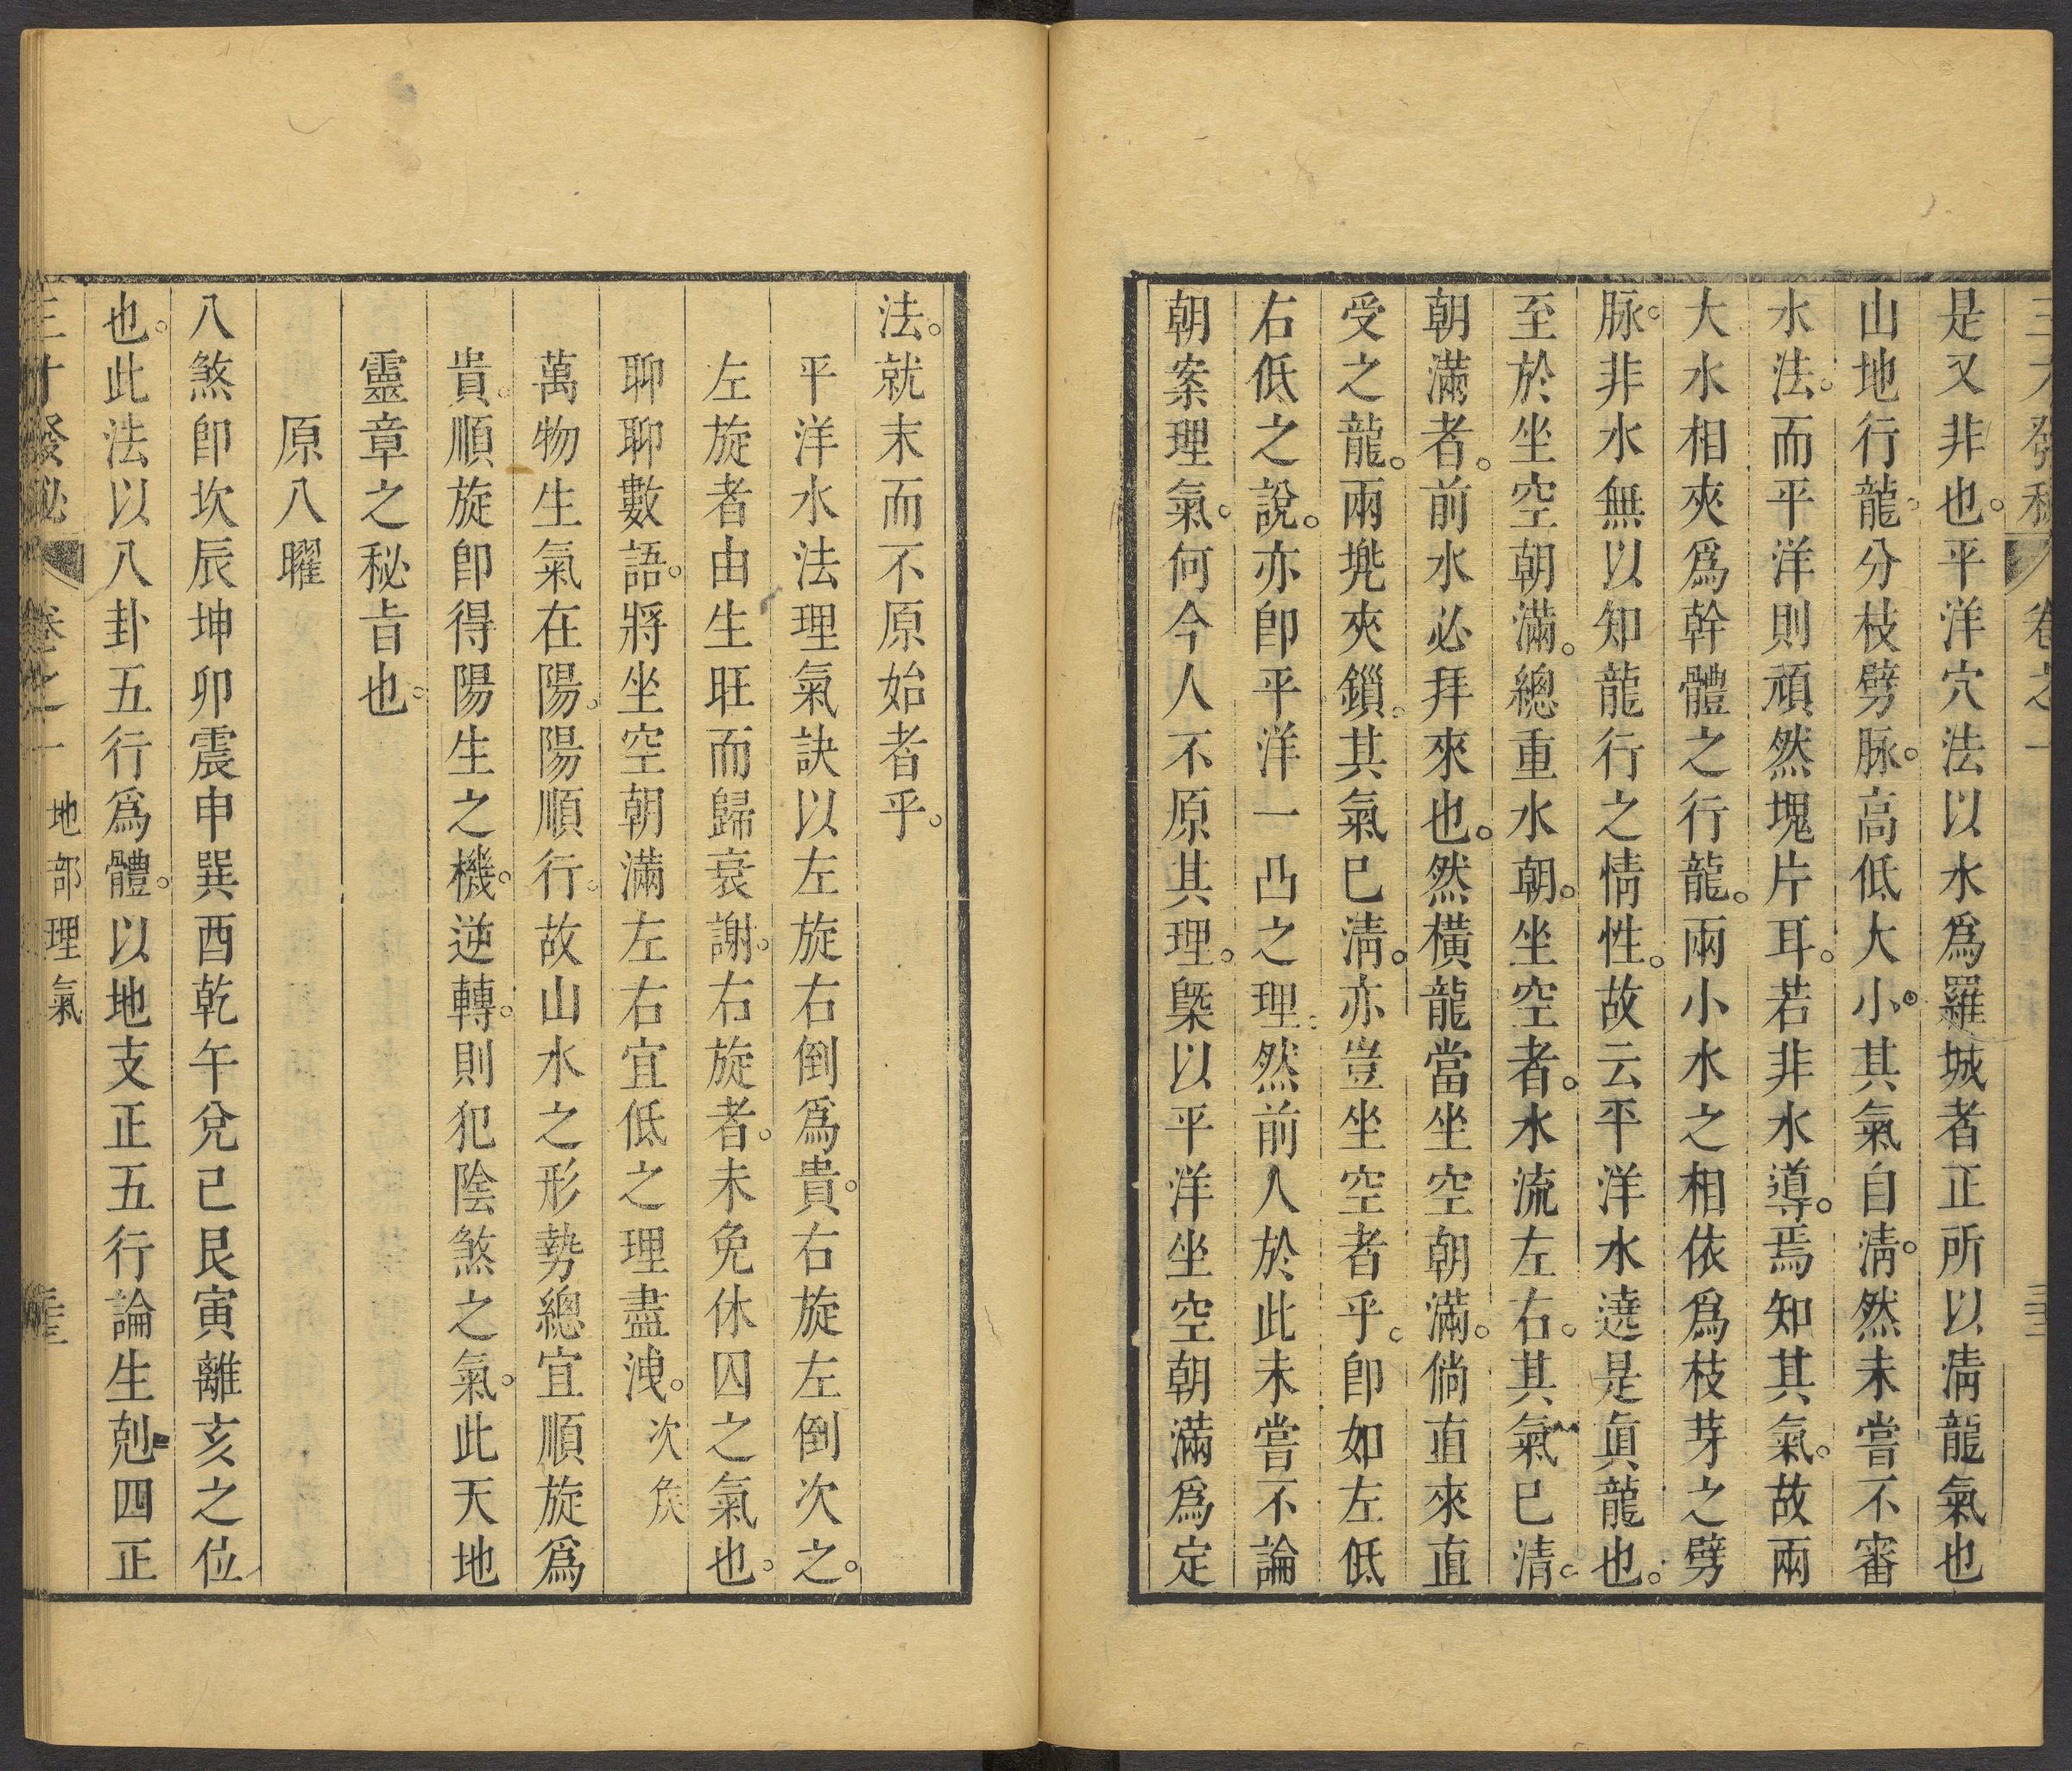 三才發秘 卷之一
是又非也。平洋穴法以水爲羅城者正所以清龍氣也
山地行龍。分枝劈脉。高低大小。其氣自清。然未嘗不審
水法。而平洋則頑然塊片耳。若非水導。焉知其氣。故兩
大水相夾爲幹體之行龍。兩小水之相依爲枝芽之劈
脉。非水無以知龍行之情性。故云平洋水遶是眞龍也。
至於坐空朝滿。總重水朝。坐空者。水流左右。其氣已清。
朝滿者。前水必拜來也。然橫龍當坐空朝滿。倘直來直
受之龍。兩兠夾鎻。其氣巳清。亦豈坐空者乎。卽如左低
右低之說。亦卽平洋一凸之理。然前人於此未嘗不論
朝案理氣。何今人不原其理。槩以平洋坐空朝滿爲定
法。就末而不原始者乎。
平洋水法理氣訣以左旋右倒爲貴。右旋左倒次之。
左旋者由生旺而歸衰謝。右旋者。未免休囚之氣也。
聊聊數語。將坐空朝滿左右宜低之理盡洩。次矦
萬物生氣在陽。陽順行。故山水之形勢總宜順旋爲
貴。順旋卽得陽生之機。逆轉。則犯陰煞之氣。此天地
靈章之秘旨也。
原八曜
八煞卽坎辰坤卯震申巽酉乾午兌已艮寅離亥之位
也。此法以八卦五行爲體。以地支正五行論生剋四正
三才發秘 卷之一 地部理氣